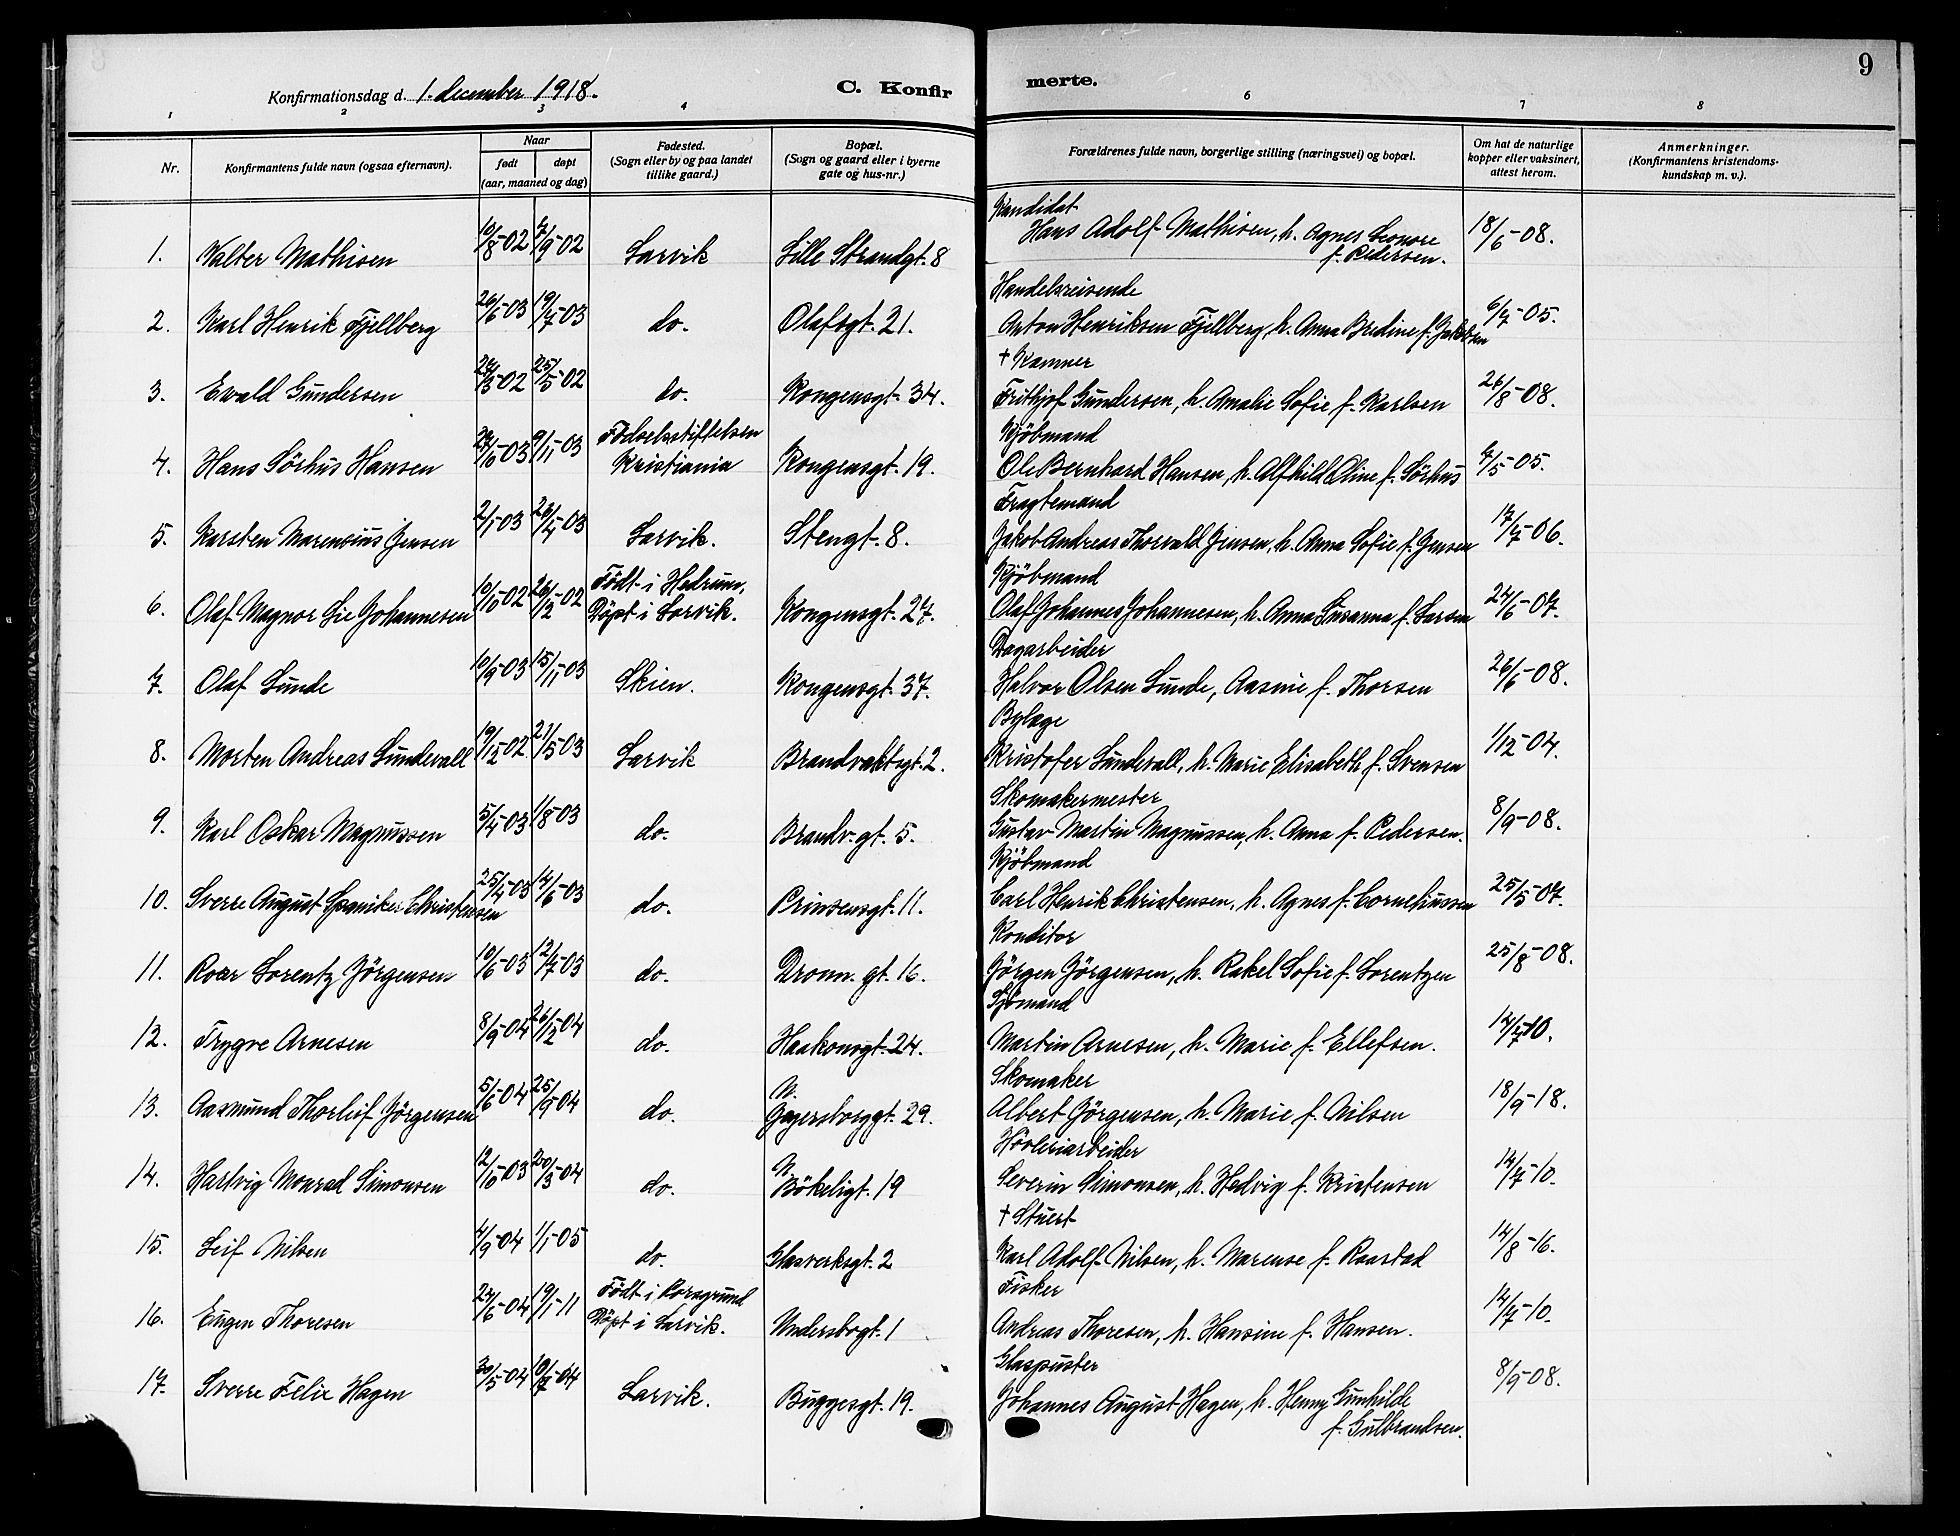 9
Konfirmationsdag d. 1. december 1918.
C. Konfirmerte.
1 2 3 4 6 7 8
Nr. Konfirmantens fulde navn (ogsaa efternavn). Naar født døpt (aar, maaned og dag) Fødested. (Sogn eller by og paa landet tillike gaard.) Bopæl. (Sogn og gaard eller i byerne gate og hus-nr.) Forældrenes fulde navn, borgerlige stilling (næringsvei) og bopæl. Om hat de naturlige kopper eller vaksinert, attest herom. Anmerkninger. (Konfirmantens kristendomskundskap m. v.).
Kandidat
1. Walter Mathisen 10/8-02 7/9-02 Larvik Lille Strandgt. 8 Hans Adolf Mathisen, h. Agnes Leonore 18/6-08.
f. Pedersen.
Handelsreisende
2. Karl Henrik Fjellberg 26/6-03 19/7-03 do. Olafsgt. 21. Anton Henriksen Fjellberg, h. Anna Bredine f. Jakobsen 6/7-05.
+ Kemner
3. Ewald Gundersen 27/3-02 25/5-02 do. Kongensgt. 34. Frithjof Gundersen, h. Amalie Sofie f. Karlsen 26/8-08.
Fødselsstiftelsen Kjöbmand
4. Hans Sörhus Hansen 27/10-03 9/11-03 Kristiania Kongensgt. 19. Ole Bernhard Hansen, h. Alfhild Oline f. Sörhus 4/5-05.
Fragtemand
5. Karsten Marensius Jensen 2/1-03 26/4-03 Larvik. Stengt. 8. Jakob Andreas Thorvald Jensen, h. Anna Sofie f. Jensen 17/7-06.
Födt i Hedrum, Kjöbmand
6. Olaf Magnor Lie Johannesen 10/10-02 26/12-02 Döpt i Larvik. Kongensgt. 27. Olaf Johannes Johannesen, h. Anna Susanna f. Larsen 24/6-07.
Dagarbeider
7. Olaf Lunde 10/9-03 15/11-03 Skien. Kongensgt. 37. Halvor Olsen Lunde, Aasine f. Thorsen 26/6-08.
Bylæge
8. Morten Andreas Lundevall 19/12-02 21/5-03 Larvik Brandvaktsgt. 2. Kristofer Lundevall, h. Marie Elisabeth f. Svensen 1/12-04.
Skomakermester
9. Karl Oskar Magnussen 5/4-03 1/8-03 do. Brandv. gt. 5. Gustav Martin Magnussen, h. Anna f. Pedersen. 8/9-08.
Kjöbmand
10. Sverre August Christensen 25/4-03 14/6-03 do. Prinsensgt. 11. Carl Henrik Christensen, h. Agnes f. Corneliussen 25/5-07.
Konditor
11. Roar Lorentz Jörgensen 10/6-03 12/7-03 do. Dronn. gt. 16. Jörgen Jörgensen, h. Rakel Sofie f. Lorentzen 25/8-08.
Sjömand
12. Trygve Arnesen 8/9-04 26/12-04 do. Haakonsgt. 24. Martin Arnesen, h. Marie f. Ellefsen. 14/7-10.
N. Skomaker
13. Aasmund Thorleif Jörgensen 5/6-04 25/9-04 do. Geyersborggt. 29. Albert Jörgensen, h. Marie f. Nilsen 18/9-18.
N. Hövleriarbeider
14. Hartvig Monrad Simonsen 12/10-03 20/3-04 do. Bökeligt. 19 Severin Simonsen, h. Hedvig f. Kristensen 14/7-10.
+ Stuert
15. Leif Nilsen 4/9-04 1/1-05 do. Glasverksgt. 2 Karl Adolf Nilsen, h. Marense f. Raastad 14/8-16.
Födt i Porsgrund Fisker
16. Eugen Thoresen 27/6-04 19/1-11 Döpt i Larvik. Undersbogt. 1 Andreas Thoresen, h. Hansine f. Hansen. 14/7-10.
Glaspuster
17. Sverre Felix Hagen 30/5-04 10/7-04 Larvik. Buggesgt. 19. Johannes August Hagen, h. Henny Gunhilde 8/9-08.
f. Gulbrandsen.